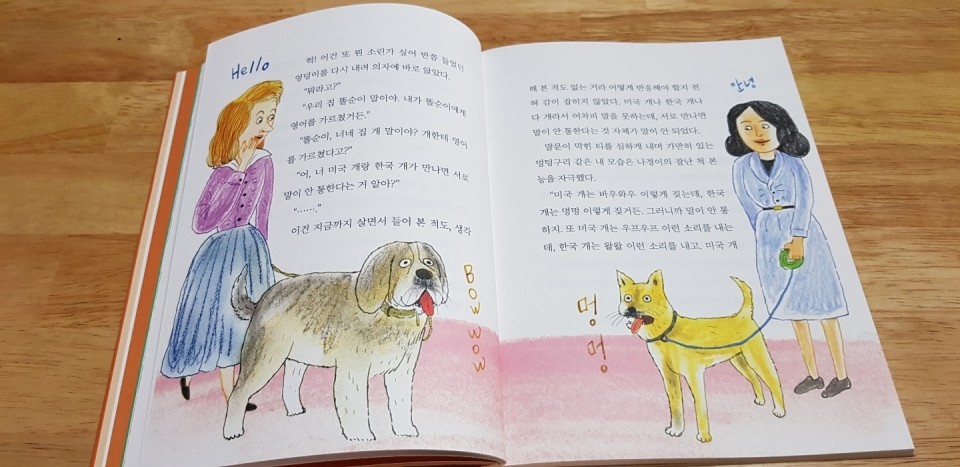 Hello
헉! 이건 또 뭔 소린가 싶어 반쯤 들었던
엉덩이를 다시 내려 의자에 바로 앉았다.
"뭐라고?"
"우리 집 똘순이 말이야. 내가 똘순이에게
영어를 가르쳤거든."
"똘순이, 너네 집 개 말이야? 개한테 영어
를 가르쳤다고?"
"어, 너 미국 개랑 한국 개가 만나면 서로
말이 안 통한다는 거 알아?"
"……."
이건 지금까지 살면서 들어 본 적도, 생각
BOW WOW
해 본 적도 없는 거라 어떻게 반응해야 할지 전
혀 감이 잡히지 않았다. 미국 개나 한국 개나
다 개라서 어차피 말을 못하는데, 서로 만나면
말이 안 통한다는 것 자체가 말이 안 되었다.
말문이 막힌 티를 심하게 내며 가만히 있는
멍텅구리 같은 내 모습은 나정이의 잘난 척 본
능을 자극했다.
"미국 개는 바우와우 이렇게 짖는데, 한국
개는 멍멍 이렇게 짖거든. 그러니까 말이 안 통
하지. 또 미국 개는 우프우프 이런 소리를 내는
데, 한국 개는 왈왈 이런 소리를 내고. 미국 개
안녕
멍멍